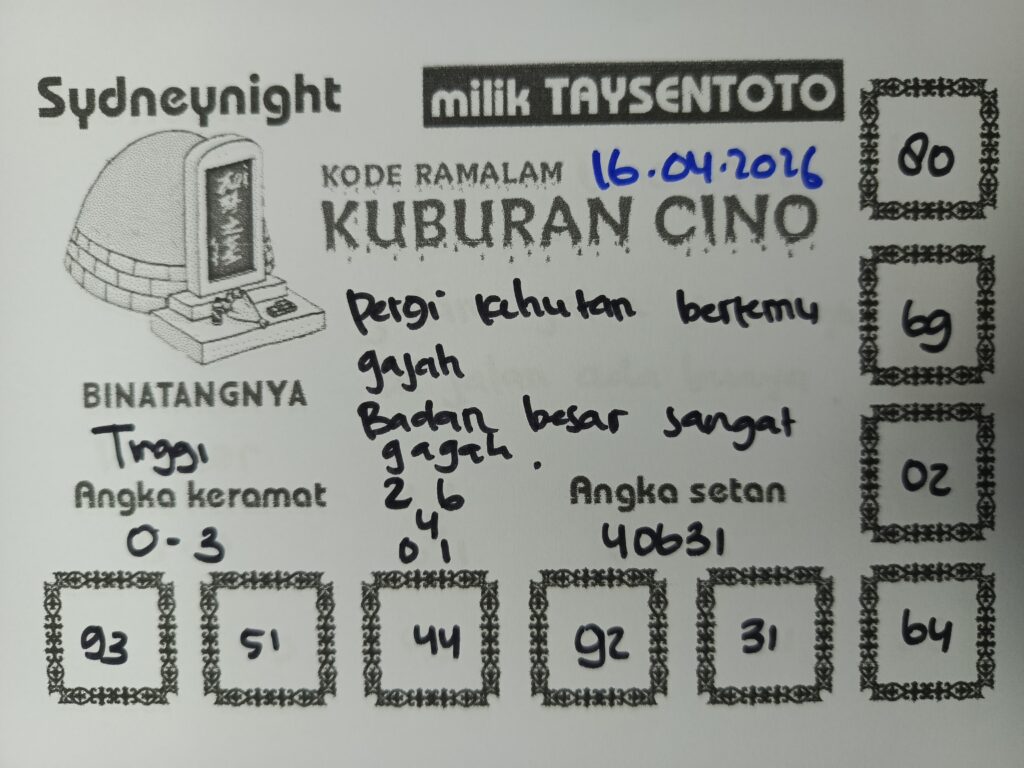 Sydneynight
milik TAYSENTOTO
KODE RAMALAM 16.04.2026
KUBURAN CINO
Pergi kehutan bertemu
gajah
Badan besar sangat
gagah.
BINATANGNYA
Tinggi
Angka keramat
0-3
2 6
4
0 1
Angka setan
40631
80
69
02
64
93 51 44 92 31